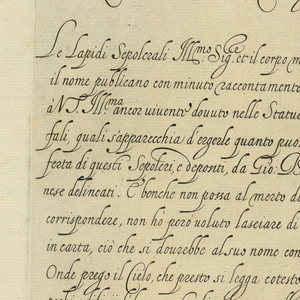 Le Lapidi Sepolcrali Ill.mo Sig.re et il corpo m
il nome publicano con minuto raccontamento
à V.S. Ill.ma ancor vivente dovuto nelle Statue
fali, quali s'apparecchia d'ergerle quanto puo
ferta di questi Sepolcri, e depositi, da Gio:
nese delineati. E benche non possa al merto de
corrispondere, non ho però voluto lasciare di
in carta, ciò che si dourebbe al suo nome con
Onde prego il Cielo, che presto si legga cotesto